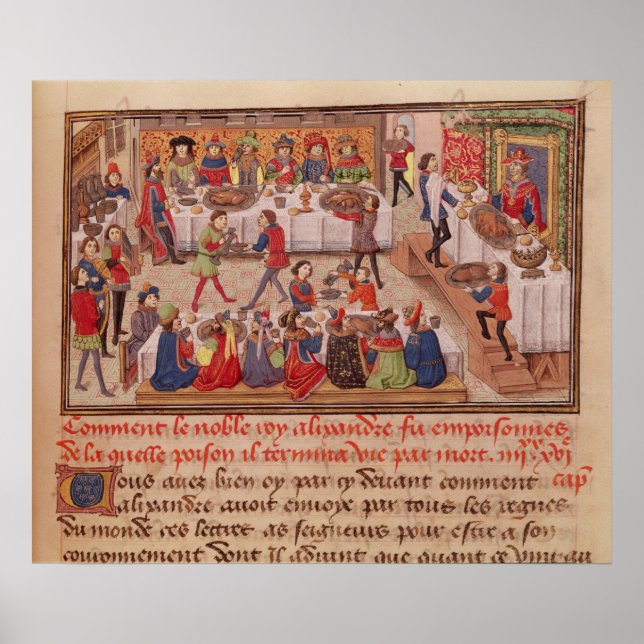 Comment le noble roy alixandre fu emporsonnes
de la quelle poison il termina vie par mort. iiijxx xvje
cap
Vous avez bien oy par cy devant comment
alixandre avoit envoye par tous les regnes
du monde ces lettres as seigneurs pour estre a son
couronnement dont il advint que quant ce vint au